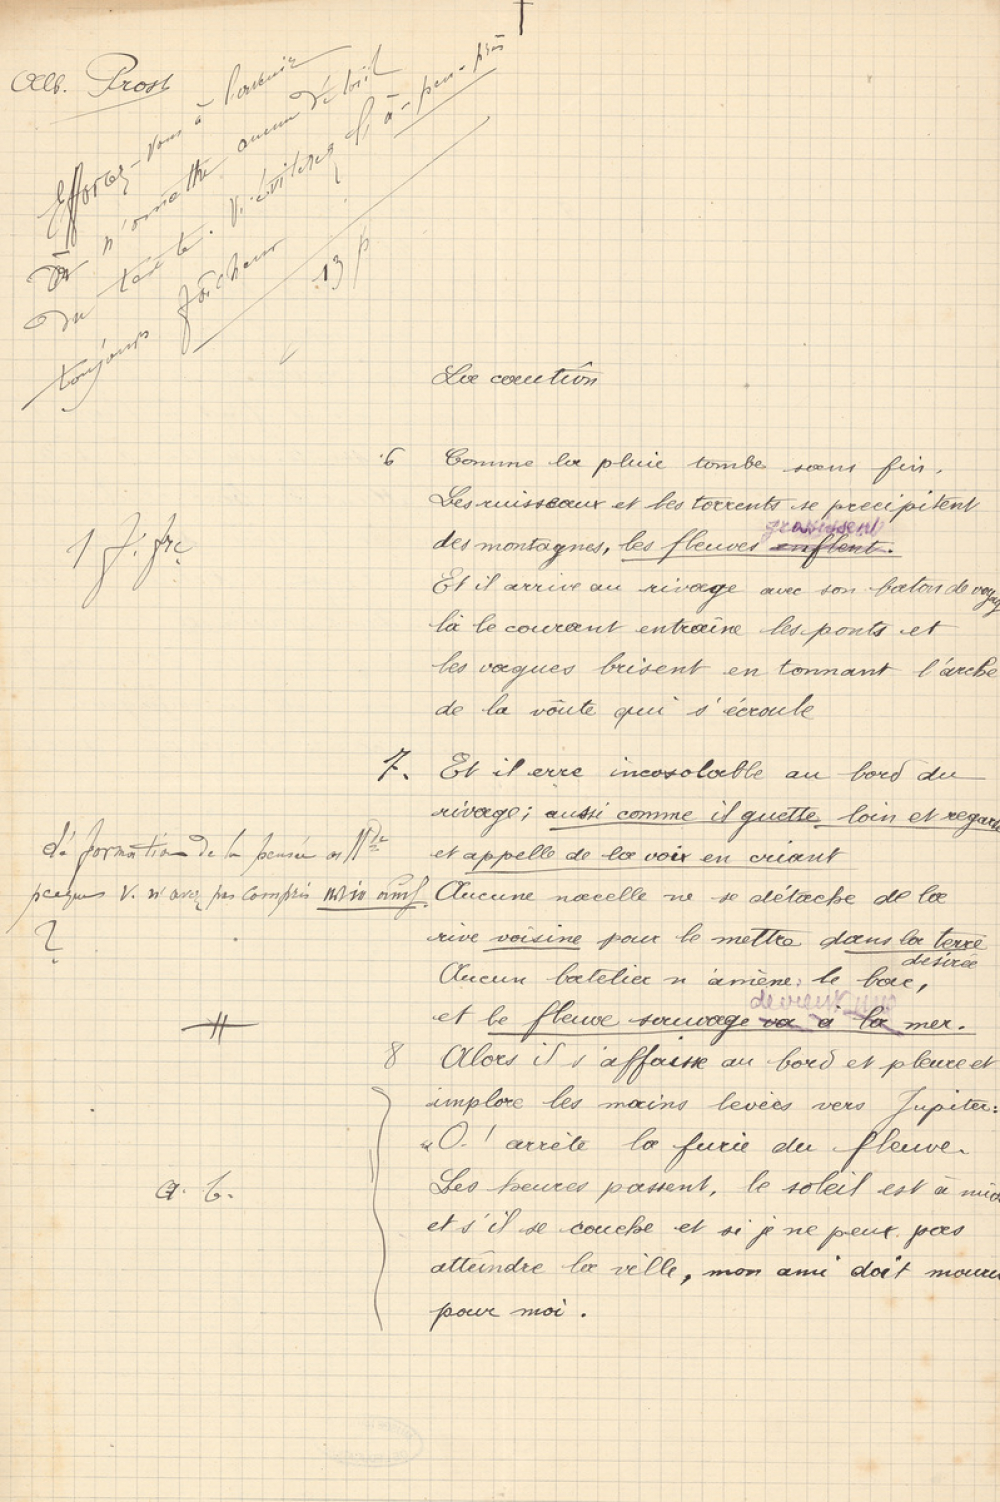 Alb. Prost
Efforcez-vous à l'avenir
de n'omettre aucun détail
du texte. V. éviterez l'à-peu-près
toujours fâcheux
13 p
La caution
6 Comme la pluie tombe sans fin.
Les ruisseaux et les torrents se precipitent
grossissent
des montagnes, les fleuves enflent.
Et il arrive au rivage avec son baton de voyag
1 f. frc
là le courant entraîne les ponts et
les vagues brisent en tonnant l'arche
de la voûte qui s'écroule
7. Et il erre incosolable au bord du
rivage; aussi comme il guette loin et regarde
et appelle de la voix en criant
déformation de la pensée
parceque V. n'avez pas compris
?
Aucune nacelle ne se détache de la
rive voisine pour le mettre dans la terre
désirée
Aucun batelier n'amène le bac,
devient une
et le fleuve sauvage va à la mer.
8 Alors il s'affaisse au bord et pleure et
implore les mains levées vers Jupiter:
"O! arrête la furie du fleuve.
a. b.
Les heures passent, le soleil est à midi
et s'il se couche et si je ne peux pas
atteindre la ville, mon ami doit mourir
pour moi.